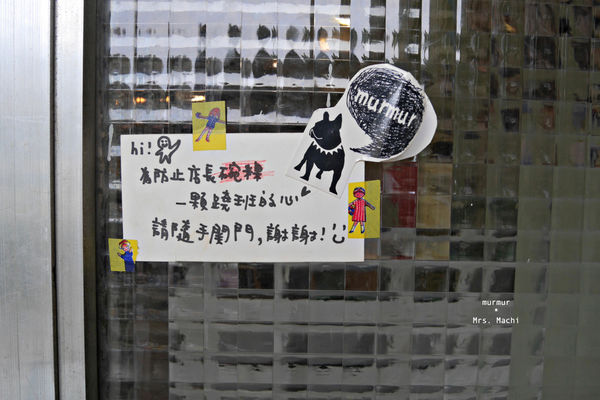 murmur
hi!
為防止店長碗粿
一顆蹺班的心
請隨手関門,謝謝!
murmur
Mrs. Machi